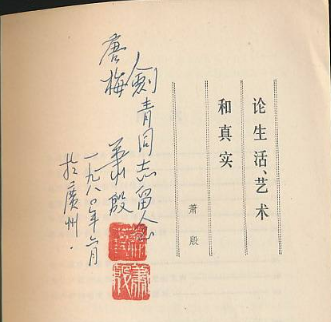 论生活、艺术
和真实
萧殷
唐梅
劍青同志留念
萧殷
一九八〇年六月
於廣州.